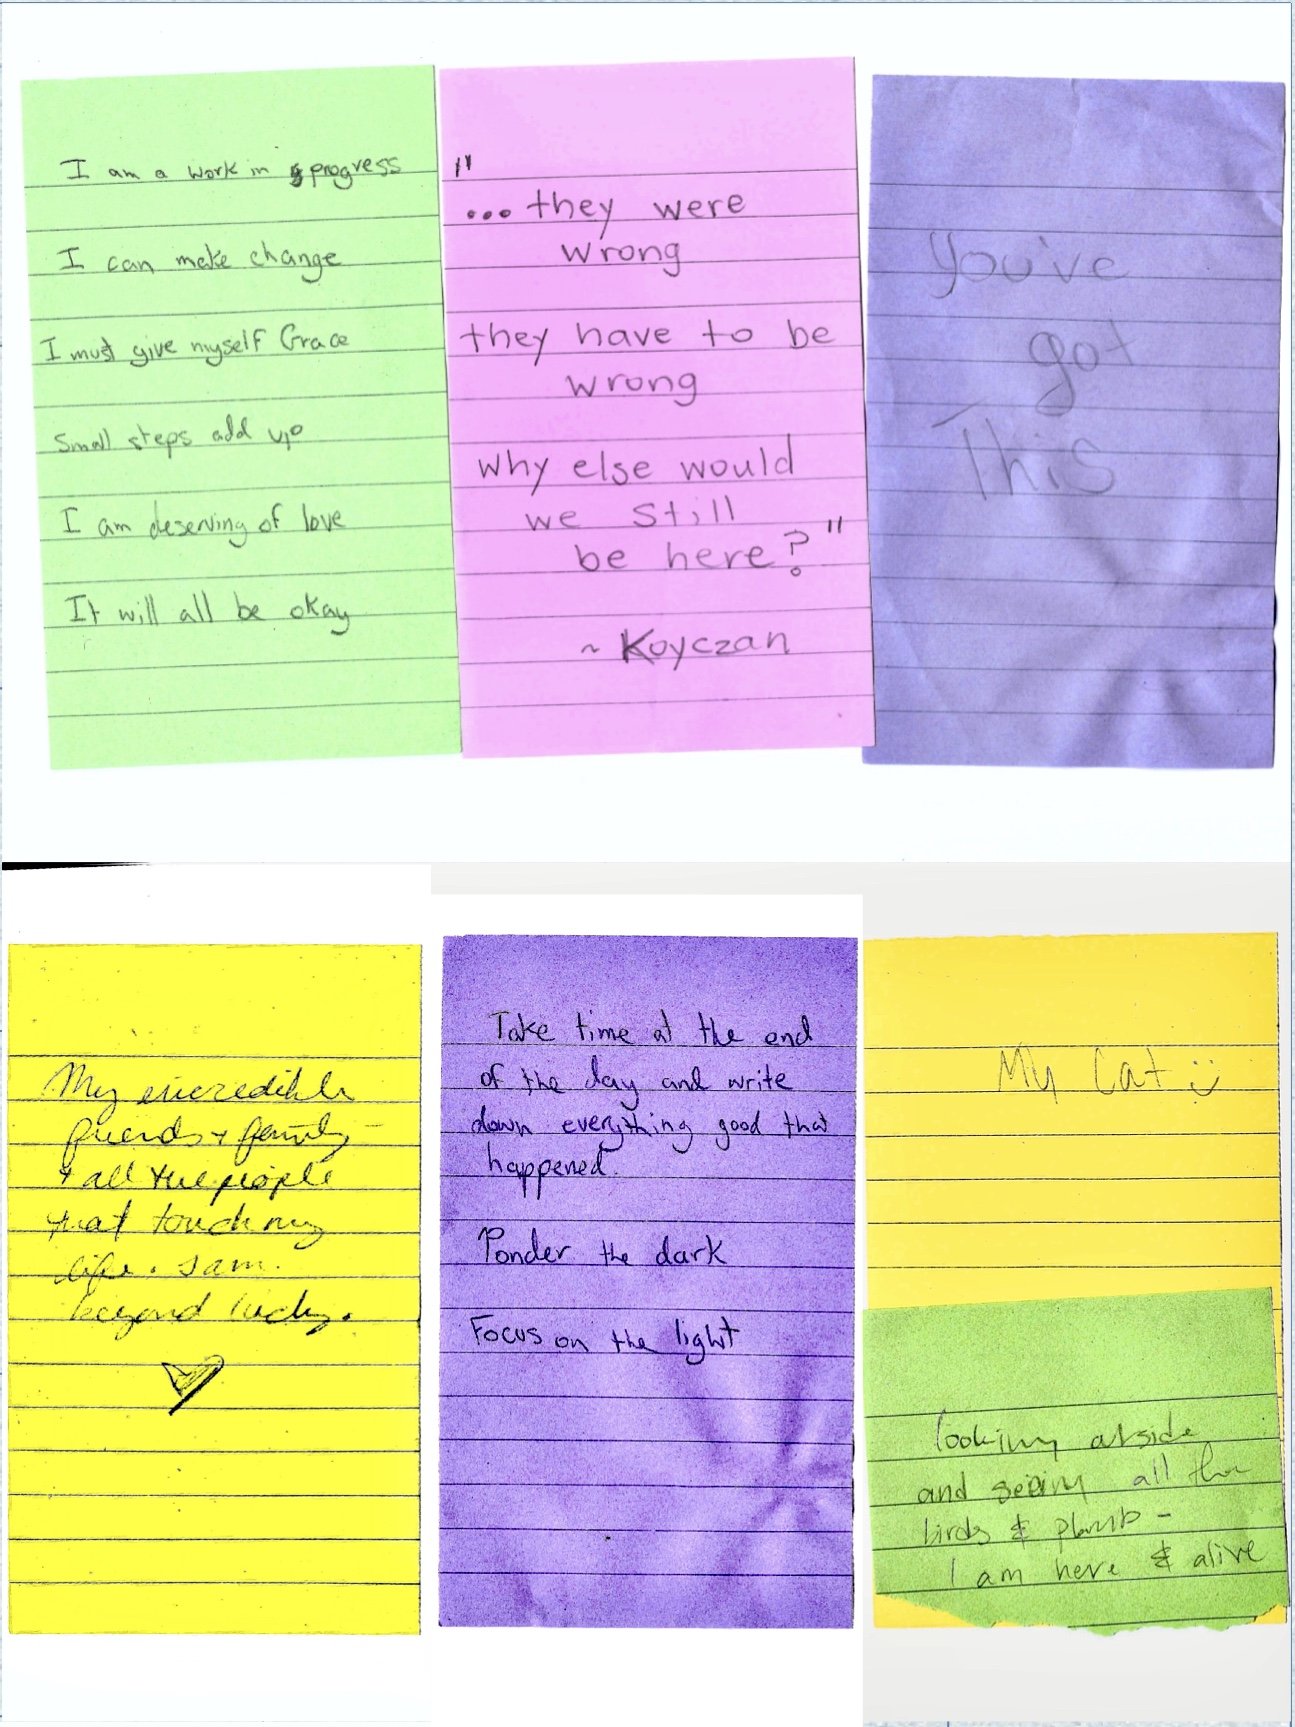 I am a work in progress
I can make change
I must give myself Grace
Small steps add up
I am deserving of love
It will all be okay
"
...they were
wrong
they have to be
wrong
why else would
we still
be here?"
~ Koyczan
You've
got
This
My incredible
friends + family
+ all the people
that touch my
life. I am
beyond lucky.
Take time at the end
of the day and write
down everything good that
happened.
Ponder the dark
Focus on the light
My Cat :)
looking outside
and seeing all the
birds & plants -
I am here & alive